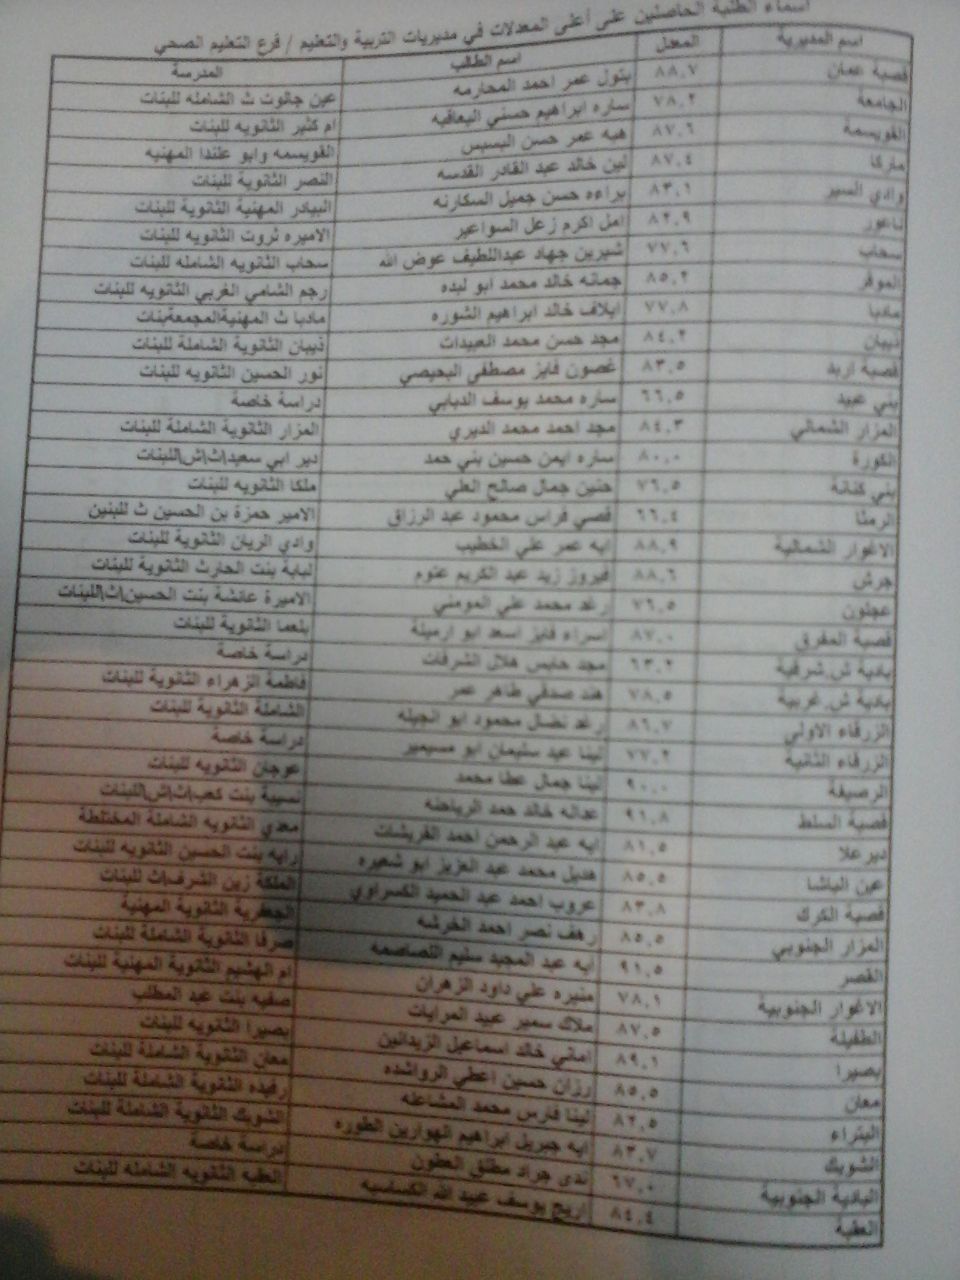 اسماء الطلبة الحاصلين على أعلى المعدلات في مديريات التربية والتعليم / فرع التعليم الصحي
اسم المديرية المعدل اسم الطالب المدرسة
قصبة عمان ٨٨.٧ بتول عمر احمد المحارمه عين جالوت ث الشامله للبنات
الجامعة ٧٨.٢ ساره ابراهيم حسني اليعاقبه ام كثير الثانويه للبنات
القويسمة ٨٧.٦ هبه عمر حسن البسيس القويسمه وابو علندا المهنيه
ماركا ٨٧.٤ لين خالد عبد القادر القدسه النصر الثانوية للبنات
وادي السير ٨٣.١ براءه حسن جميل السكارنه البيادر المهنية الثانوية للبنات
ناعور ٨٢.٩ امل اكرم زعل السواعير الاميره ثروت الثانويه للبنات
سحاب ٧٧.٦ شيرين جهاد عبداللطيف عوض الله سحاب الثانويه الشامله للبنات
الموقر ٨٥.٢ جمانه خالد محمد ابو لبده رجم الشامي الغربي الثانويه للبنات
مادبا ٧٧.٨ ايلاف خالد ابراهيم الشوره مادبا ث المهنيةالمجمعةبنات
ذيبان ٨٤.٢ مجد حسن محمد العبيدات ذيبان الثانوية الشاملة للبنات
قصبة اربد ٨٣.٥ غصون فايز مصطفى البحيصي نور الحسين الثانويه للبنات
بني عبيد ٦٦.٥ ساره محمد يوسف الديابي دراسة خاصة
المزار الشمالي ٨٤.٣ مجد احمد محمد الديري المزار الثانوية الشاملة للبنات
الكورة ٨٠.٠ ساره ايمن حسين بني حمد دير ابي سعيد\ث\ش\للبنات
بني كنانة ٧٦.٥ حنين جمال صالح العلي ملكا الثانويه للبنات
الرمثا ٦٦.٤ قصي فراس محمود عبد الرزاق الامير حمزة بن الحسين ث للبنين
الاغوار الشمالية ٨٨.٩ ايه عمر علي الخطيب وادي الريان الثانوية للبنات
جرش ٨٨.٦ فيروز زيد عبد الكريم عتوم لبابة بنت الحارث الثانوية للبنات
عجلون ٧٦.٥ رغد محمد علي المومني الاميرة عائشة بنت الحسين\ث\للبنات
قصبة المفرق ٨٧.٠ اسراء فايز اسعد ابو ارميلة بلعما الثانوية للبنات
بادية ش.شرقية ٦٣.٢ مجد حابس هلال الشرفات دراسة خاصة
بادية ش.غربية ٧٨.٥ هند صدقي طاهر عمر فاطمة الزهراء الثانوية للبنات
الزرقاء الاولى ٨٦.٧ رغد نضال محمود ابو الشاملة الثانوية للبنات
الزرقاء الثانية ٧٧.٢ لينا عيد سليمان ابو مسيمير دراسة خاصة
الرصيفة ٩٠.٠ لينا جمال عطا محمد عوجان الثانويه للبنات
قصبة السلط ٩١.٨ عداله خالد حمد الرياحنه نسيبة بنت كعب\ث\ش\للبنات
ديرعلا ٨١.٥ ايه عبد الرحمن احمد القريشات معدي الثانويه الشاملة المختلطة
عين الباشا ٨٥.٥ هديل محمد عبد العزيز ابو شعيره رايه بنت الحسين الثانويه للبنات
قصبة الكرك ٨٣.٨ عروب احمد عبد الحميد الكسراوي الملكة زين الشرف\ث للبنات
المزار الجنوبي ٨٥.٥ رهف نصر احمد الخرشه الجعفرية الثانوية المهنية
القصر ٩١.٥ ايه عبد المجيد سليم اللصاصمه صرفا الثانوية الشاملة للبنات
الاغوار الجنوبية ٧٨.١ منيره علي داود الزهران ام الهشيم الثانوية المهنية للبنات
الطفيلة ٨٧.٥ ملاك سمير عبيد المرايات صفيه بنت عبد المطلب
بصيرا ٨٩.١ اماني خالد اسماعيل الزيدانين بصيرا الثانويه للبنات
معان ٨٥.٥ رزان حسين اعطي الرواشده معان الثانوية الشاملة للبنات
البتراء ٨٢.٥ لينا فارس محمد المشاعله رفيده الثانوية الشاملة للبنات
الشوبك ٨٣.٧ ايه جبريل ابراهيم الهوارين الطوره الشوبك الثانوية الشاملة للبنات
البادية الجنوبية ٦٧.٠ ندى جراد مطلق العطون دراسة خاصة
العقبة ٨٤.٤ اريج يوسف عبيد الله الكساسبه العقبه الثانويه الشامله للبنات